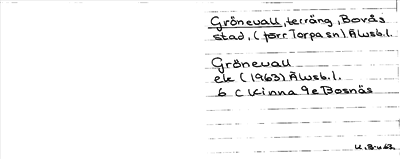 Grönevall, terräng, Borås
stad, (förr Torpa sn) Älvsb.l.
Grönevall
ek (1963) Älvsb.l.
6 C Kinna 9e Bosnäs